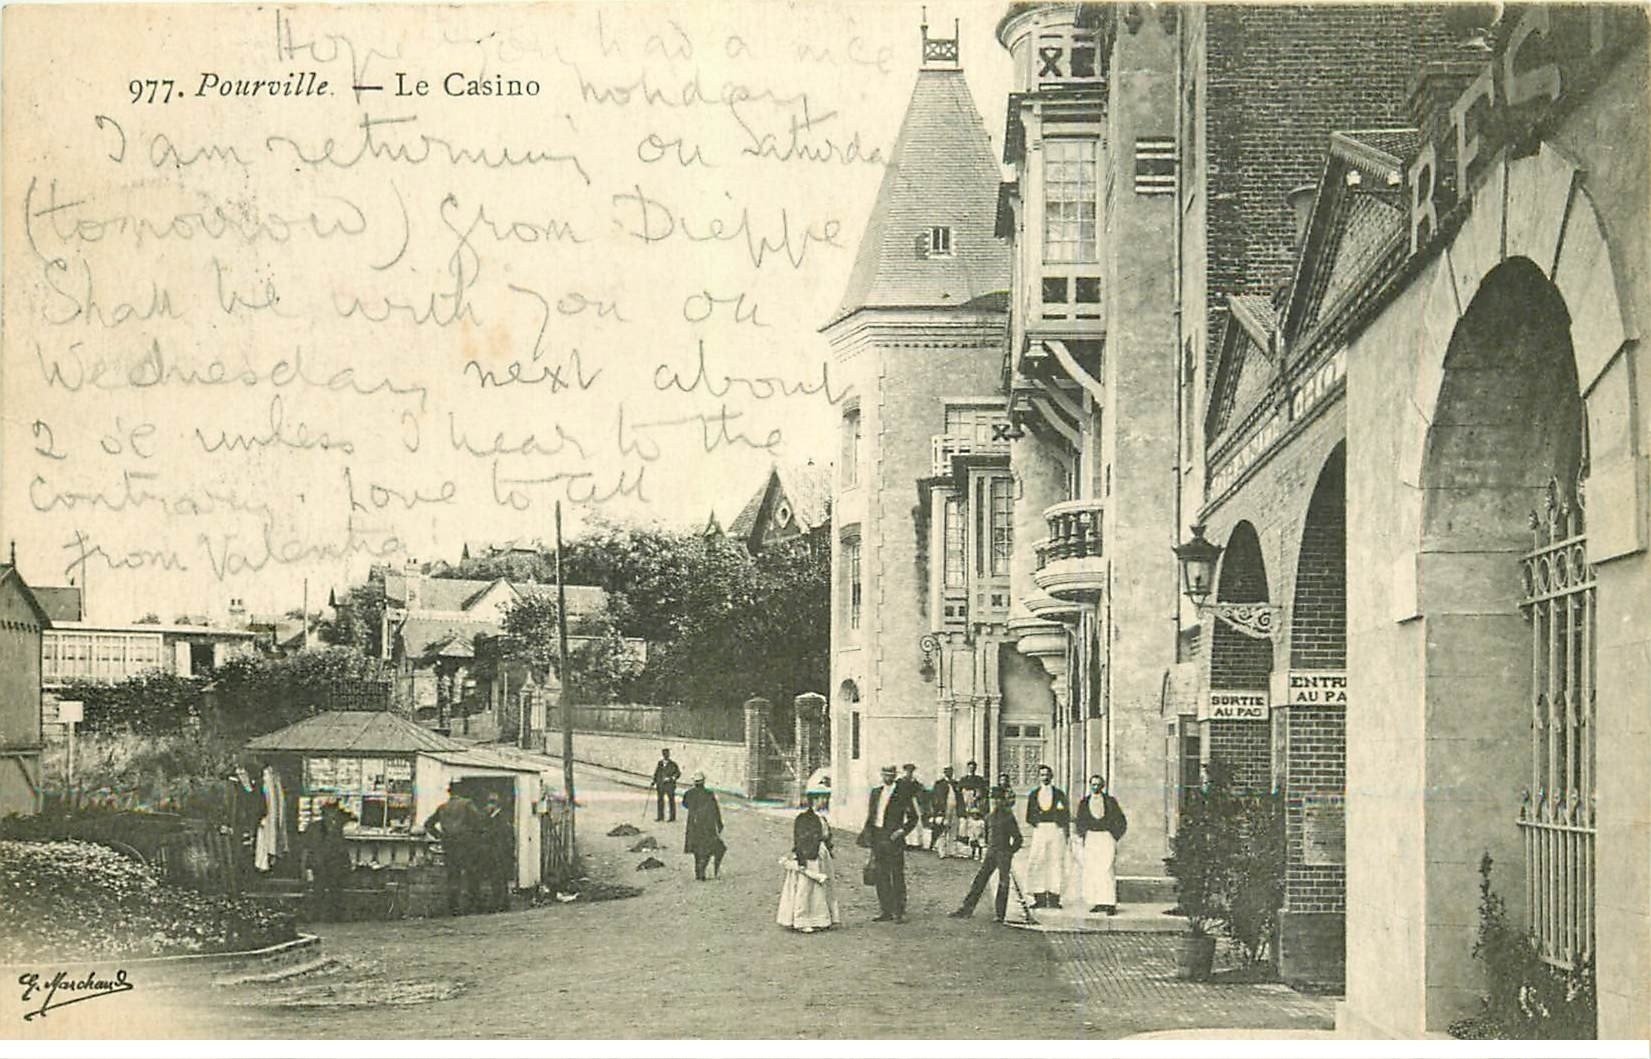 Hope you had a nice
holiday.
977. Pourville. — Le Casino
I am returning on Saturday
(tomorrow) from Dieppe
Shall be with you on
Wednesday next about
2 o'c unless I hear to the
contrary. Love to all
from Valentia
REST
LINGERIE
SORTIE
AU PAC
ENTR
AU PA
G. Marchand